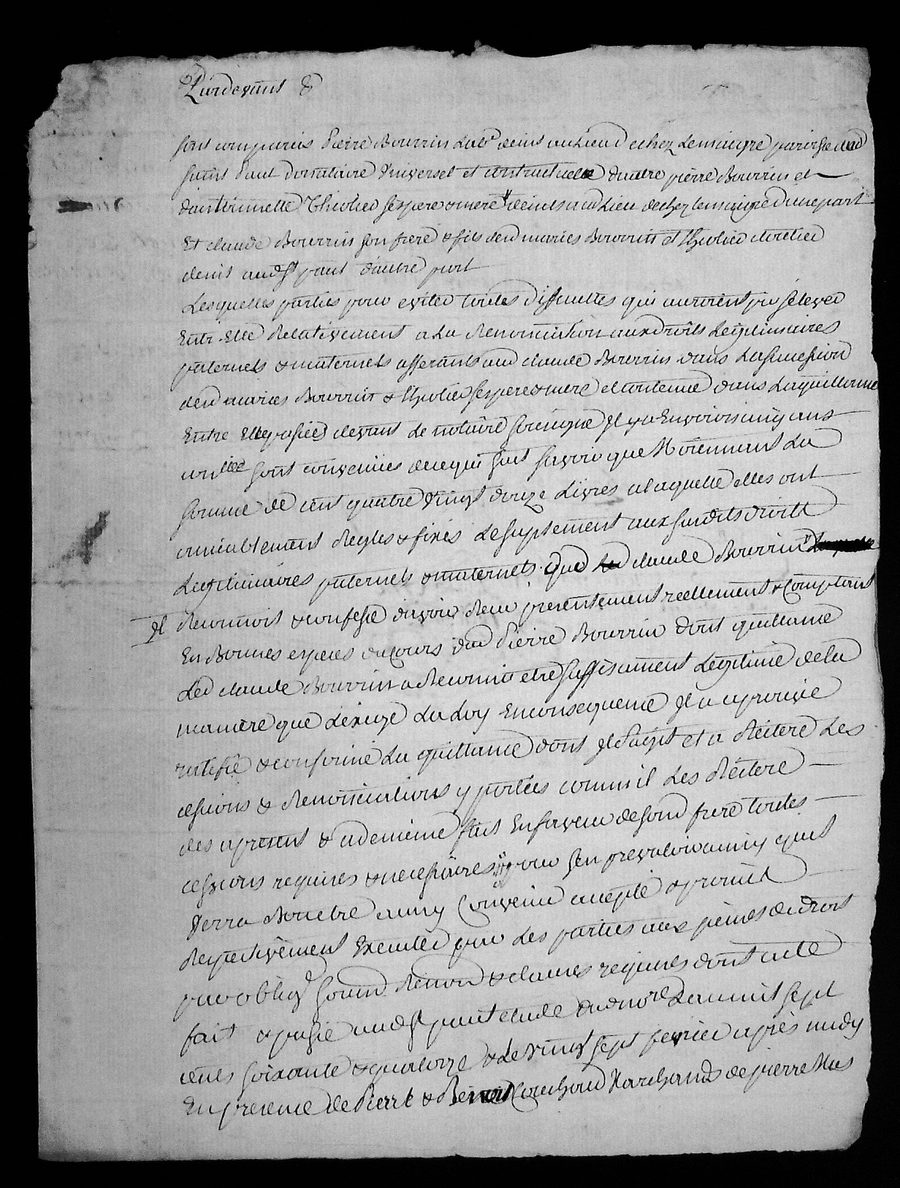 Pardevant &
sont comparus Pierre Bourrin lab.r demt au Lieu de chez Lemaigre paroisse dud
saint haut donataire Universel et contractuel d'autre pierre Bourrin et
d'antoinnette Thiolier ses pere & mere demts au Lieu de chez Lemaigre d'une part
Et claude Bourrin son frere & fils desd maries Bourrin et thiolier
demt aud st haut d'autre part
Lesquelles parties pour eviter toutes dificultes qui auroient pu s'elever
Entre Elle Relativement a La Renontiation aux droits Legitimaires
paternels & maternels afferants aud claude Bourrin dans La sucession
desd maries Bourrin & thiolier ses pere & mere et contenue dans La quittance
Entre Elle passée devant le notaire soussigne Il y a Environ cinq ans
sont convenues de ce qui suit savoir que Moiennant La
somme de cent quatre Vingt douze Livres a laquelle elles ont
amiablement Regles & fixés Le suplement aux susdits droits
Legitimaires paternels & maternels que Led claude Bourrin
Reconnoit & confesse d'avoir Recu presentement reellement & Comptant
En Bonnes especes du cours dud Pierre Bourrin dont quittance
Led claude Bourrin a Reconnu etre suffisament Legitimé de la
maniere que L'exige La Loy En consequence Il a aprouvé
ratifié & confirmé La quittance dont Il s'agit et a Reiteré Les
cessions & Renontiations y portées comme il Les Reitere
des apresent & a de même fait En faveur de sond frere toutes
cessions requises & necessaires pour s'en prevaloir ainsy quil
Verra Bon etre ainsy Convenu accepté & promit
Respectivement Executer par Les parties aux peines de droit
par oblig.on soum.on Renon.on & clauses requises dont acte
fait & passé aud st haut etude du no.re L'an mil sept
cents soixante & quatorze & Le Vingt sept fevrier après midy
En presence de Pierre & Benoit Couchoud Marchands de pierre